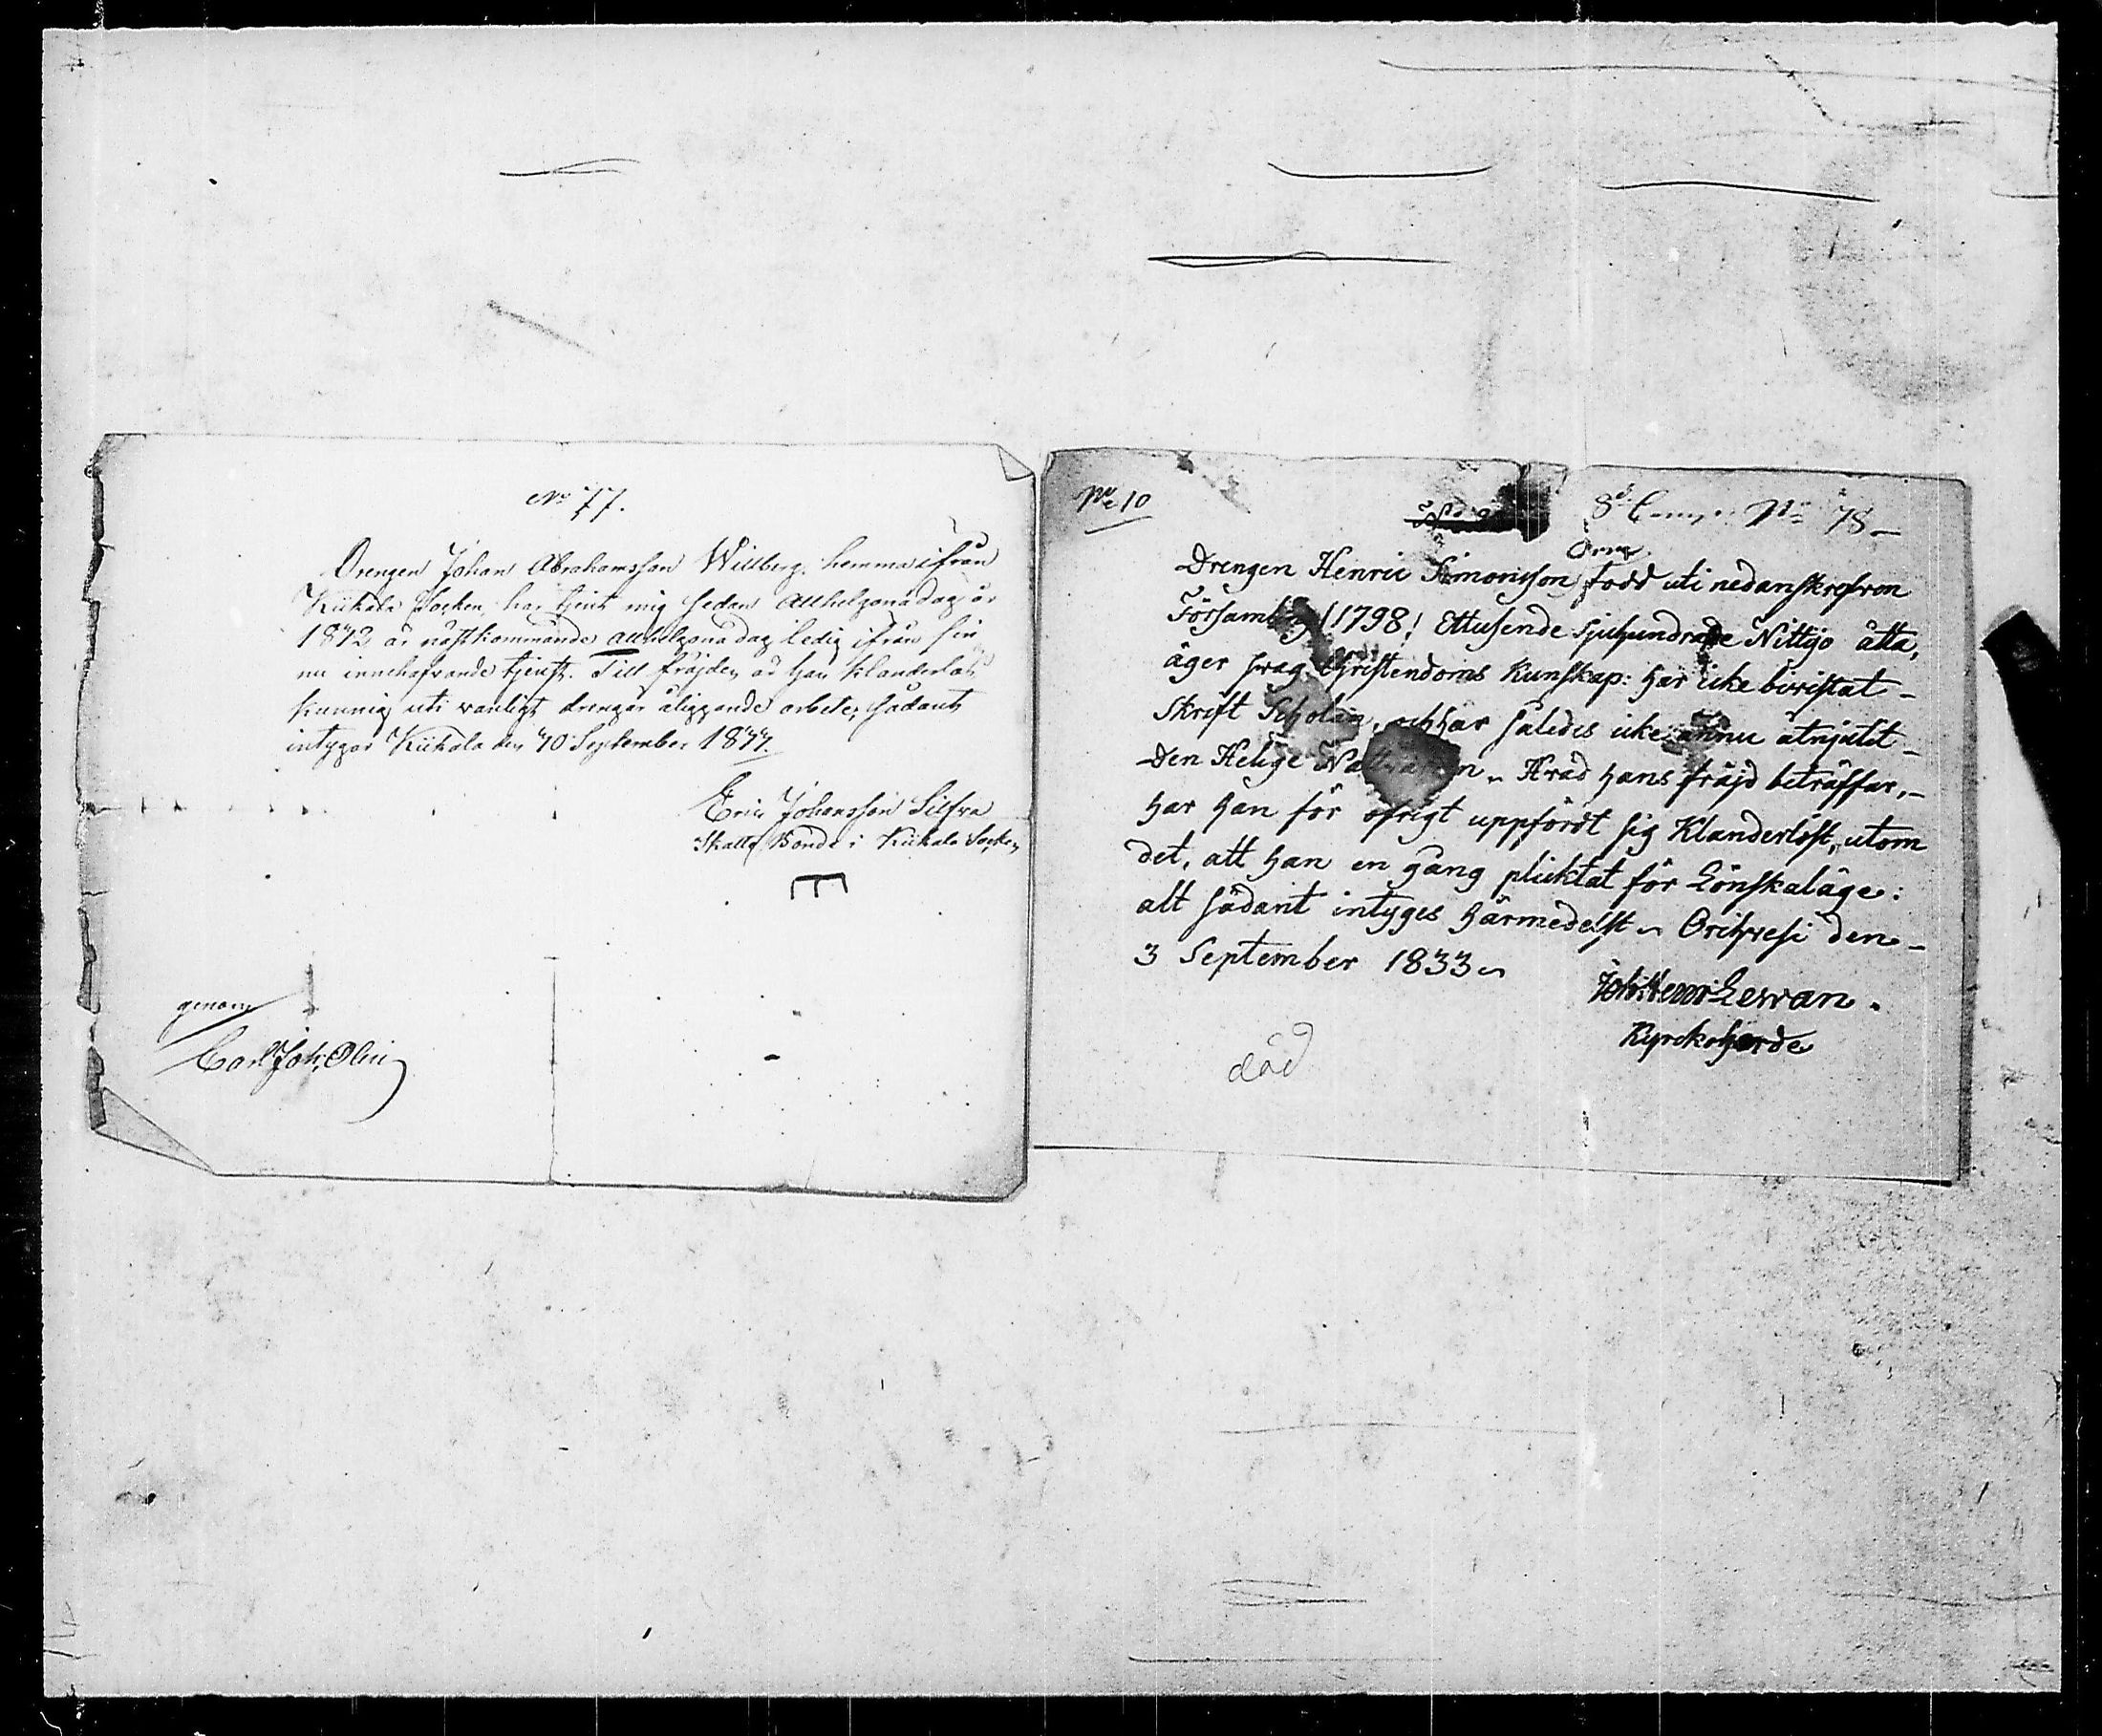 No 77.
Drengen Johan Abrahamsson Willberg hemma ifrån
Kiikala Socken har tjent mig sedan Allhelgona dag år
1842 är nästkommande allhelgona dag ledig ifrån sin
nu innehafvande tjenst. Till fräjden är han klanderlös
kunnig uti vanligt drengar åliggande arbete, sådant
intygar Kiikala den 10 September 1844
Eric Johansson Silfra
Skatte Bonde i Kiikala Socken
genom
Carl Joh: Olin
No 10
8d Comp. No 78
Drengen Henric Simonsson född uti nedanskrefvon
Församling (1798) Ettusende Sjuhundrade Nittijo åtta,
äger svag Christendoms Kunskap: har icke bivistat
Skrift Scholan, och har således icke ännu åtnjutit
Den Helige Nattvarden. Hvad hans fräjd beträffar,
har han för öfrigt uppfördt sig Klanderlöst, utom
det, att han en gång plicktat för Lönskaläge:
alt sådant intyges härmedelst Orihvesi den
3 September 1833
Joh: Henr: Levvan.
Kyrckoherde
död